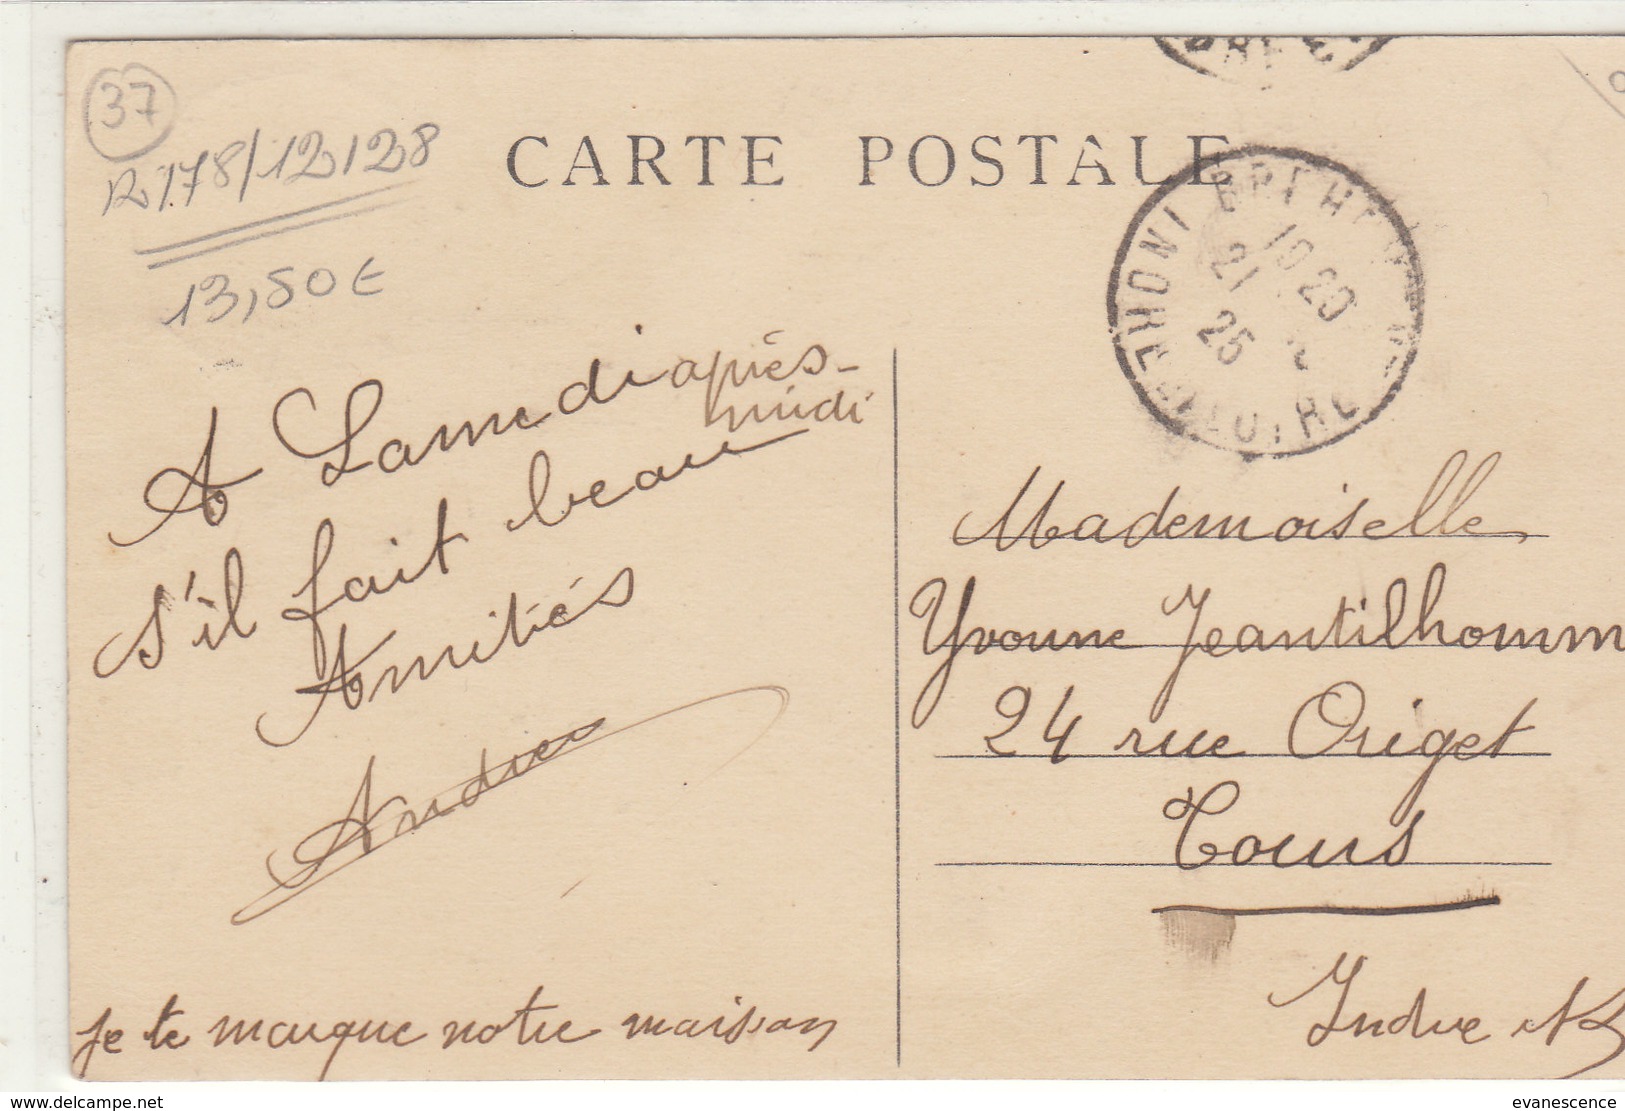 37
R178/12128
13,50€
CARTE POSTALE
BREHEMONT
10 20
21
25
INDRE-ET-LOIRE
A Samedi après-
midi
s'il fait beau
Amitiés
Je te marque notre maison
Mademoiselle
Yvonne Jeantilhomm
24 rue Origet
Tours
Indre et L
www.delcampe.net
evanescence